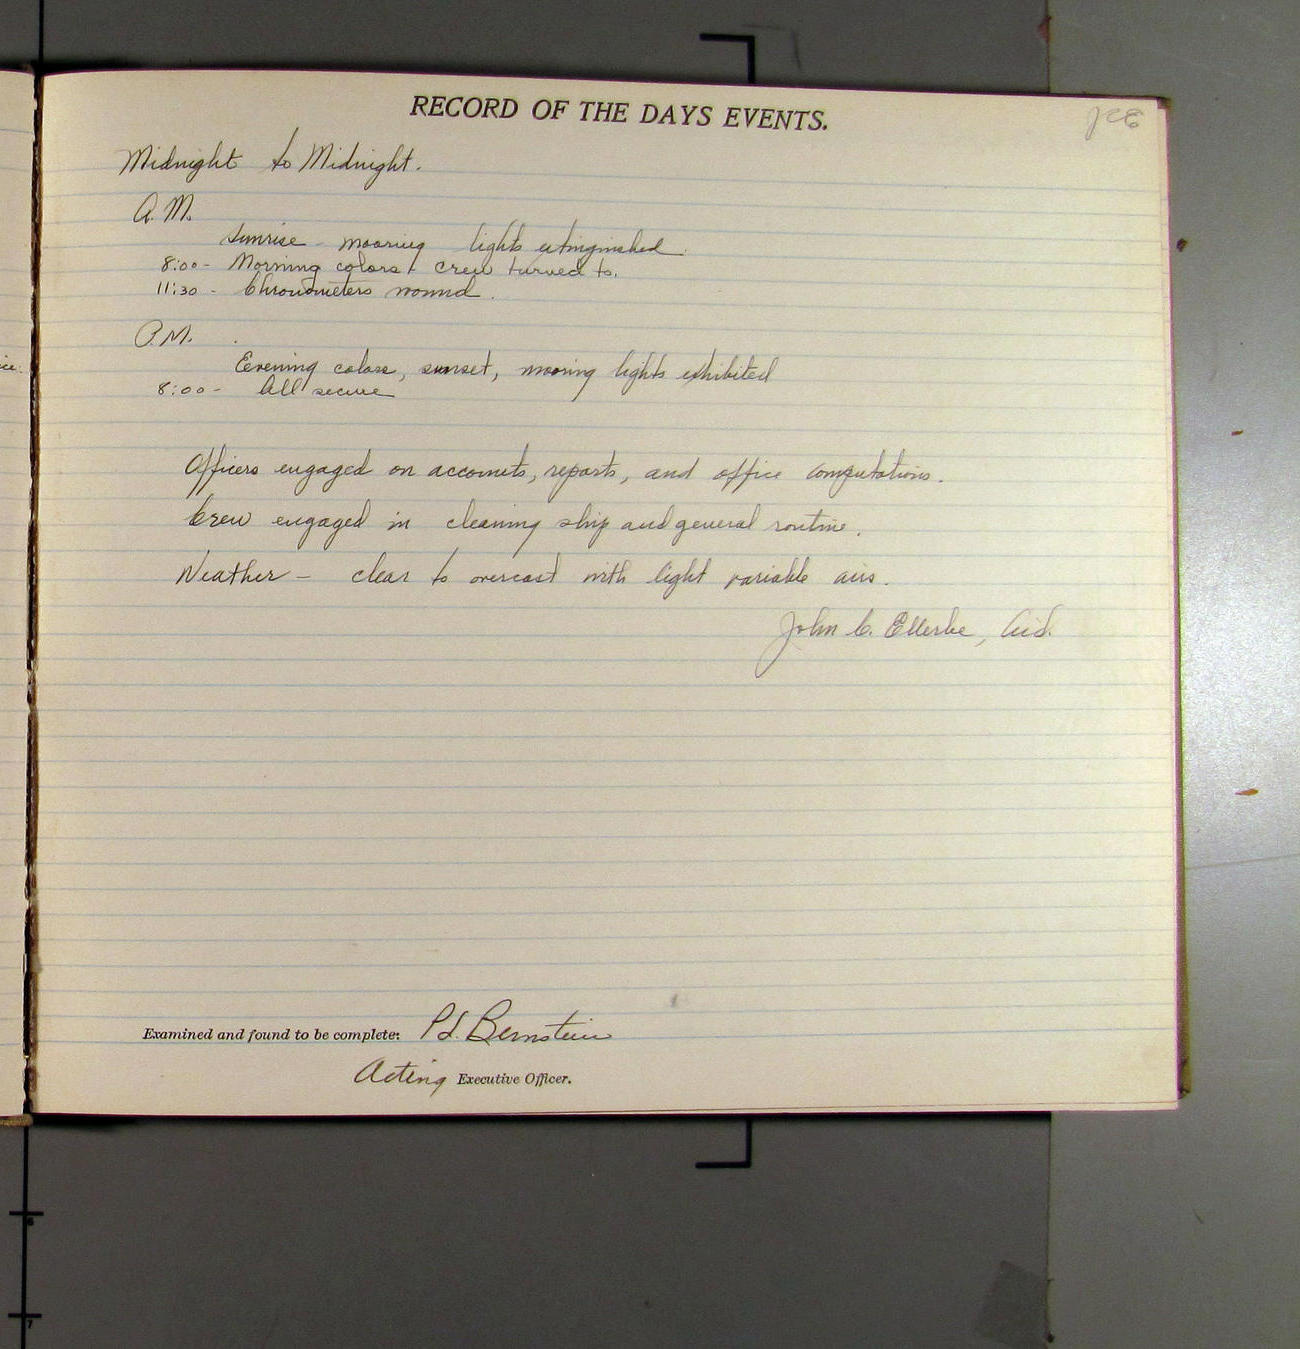 RECORD OF THE DAYS EVENTS.
JCE
Midnight to Midnight.
A.M.
Sunrise - mooring lights extinguished.
8:00 - Morning colors & crew turned to.
11:30 - Chronometers wound.
P.M.
Evening colors, sunset, mooring lights exhibited
8:00 - All secure
Officers engaged on accounts, reports, and office computations.
Crew engaged in cleaning ship and general routine.
Weather - clear to overcast with light variable airs.
John C. Ellerbe, Aid.
Examined and found to be complete: P.L. Bernstein
Acting Executive Officer.
6
7